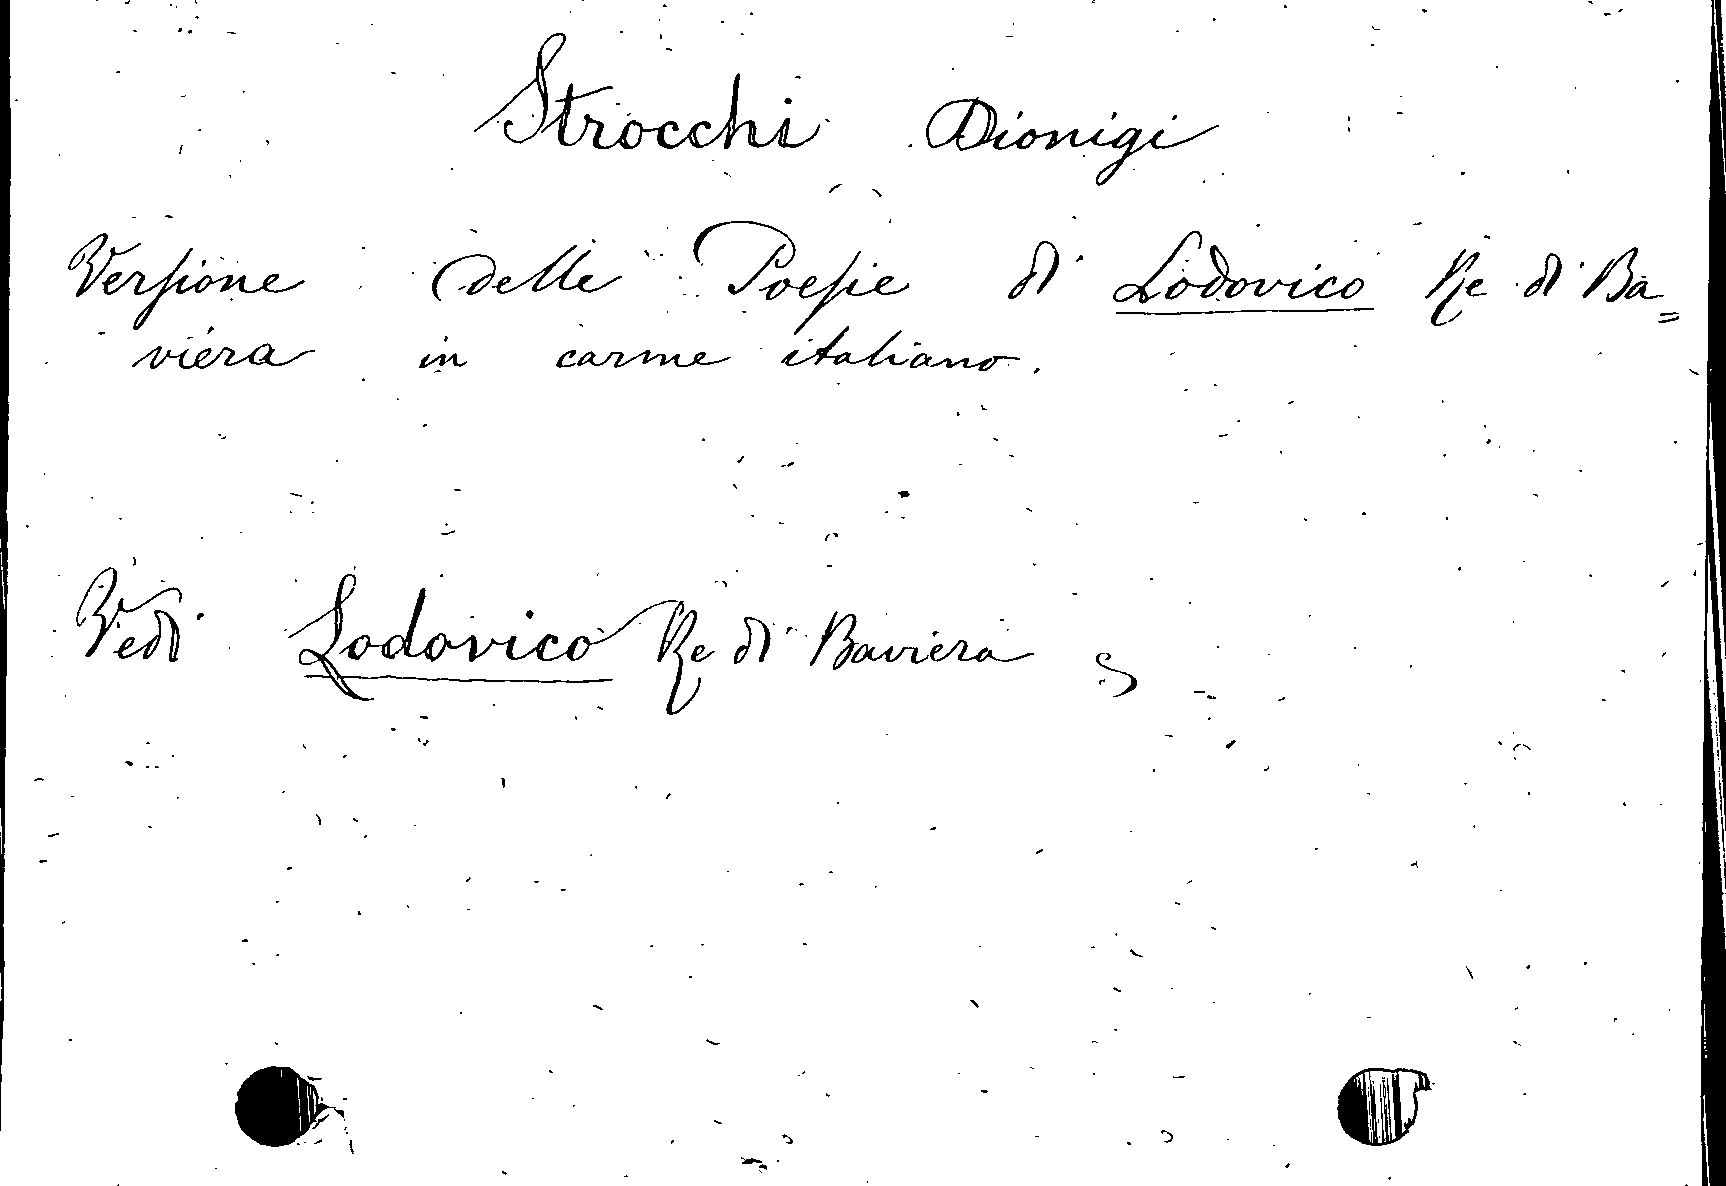 Strocchi Dionigi
Versione delle Poesie di Lodovico Re di Ba=
viera in carme italiano.
Vedi Lodovico Re di Baviera